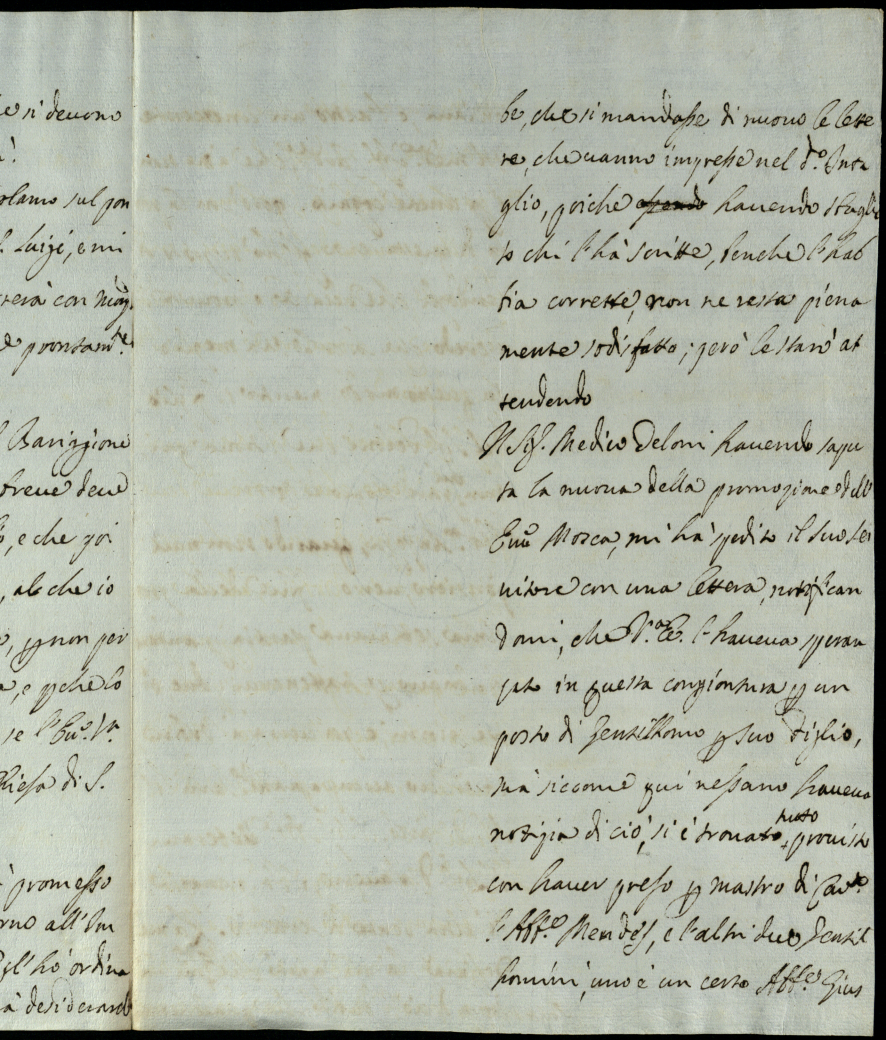 e si devono
à!
rlamo sul pon
Luigi, e mi
rerà con mag.
e prontam.te
Barigione
breve deve
o, e che poi
, al che io
o, p non per
a, e p che lo
se l'Em.o V.
Chiesa di S.
promesso
rno all'Im
gl'hò ordina
à desiderando
be, che si mandasse di nuovo le lette
re, che vanno impresse nel d.o Inta
glio, poiche essendo havendo sbaglia
to chi l'hà scritte, benche l'hab
bia corrette, non ne resta piena
mente sodisfatto; però le starò at
tendendo
Il Sig. Medico Deloni havendo sapu
ta la nuova della promozione dell'
Em̃o Mosca, mi hà spedito il suo ser
vitore con una lettera, notifican
domi, che V.a E. l'haveva speran
zato in questa congiontura p un
posto di Gentilhomo p suo figlio,
mà siccome qui nessuno haveva
notizia di ciò, si è trovato tutto provisto
con haver preso p mastro di Cam.ra
l'Abb.e Mendes, e l'altri due Gentil
homini, uno è un certo Abb.e Gius